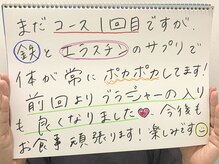 まだコース1回目ですが、
鉄とエラスチンのサプリで
体が常にポカポカしてます!
前回よりブラジャーの入り
も良くなりました♥今後も
お食事頑張ります!楽しみです☺